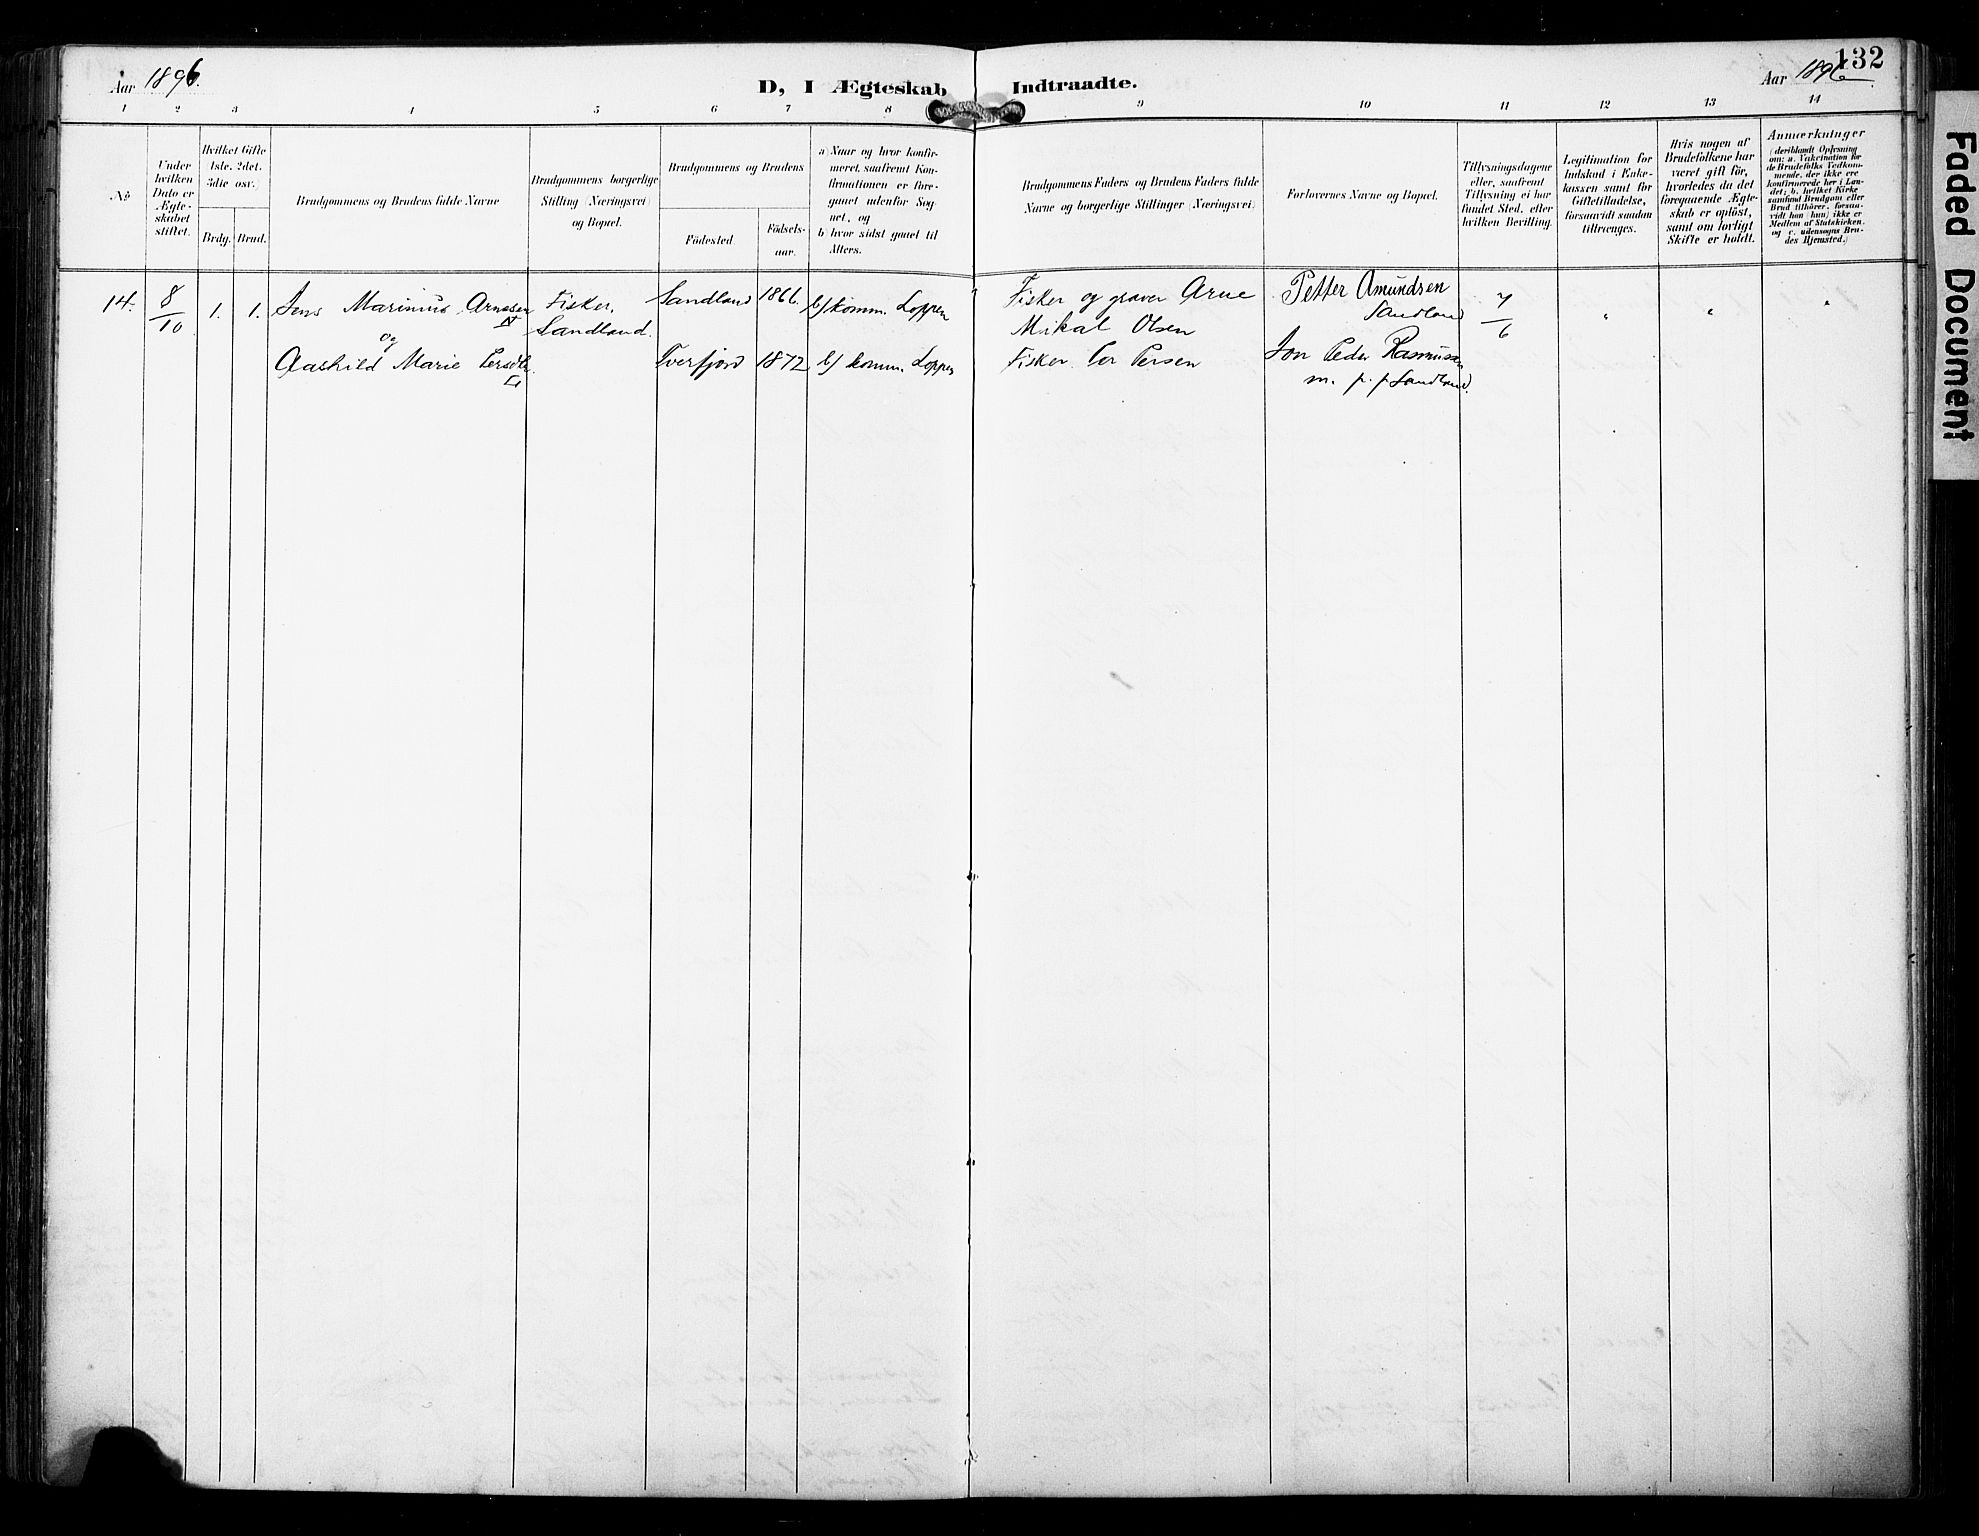 Aar 1896.
D, I Ægteskab Indtraadte.
Aar 1896
132
1 2 3 4 5 6 7 8 9 10 11 12 13 14
No
Under hvilken Dato er Ægteskabet stiftet.
Hvilket Gifte 1ste. 2det. 3die osv.
Brdg. Brud.
Brudgommens og Brudens fulde Navne
Brudgommens borgerlige Stilling (Næringsvei) og Bopæl.
Brudgommens og Brudens
Födested.
Födselsaar.
a) Naar og hvor konfirmeret, saafremt Konfirmationen er foregaaet udenfor Sognet, og
b) hvor sidst gaaet til Alters.
Brudgommens Faders og Brudens Faders fulde Navne og borgerlige Stillinger (Næringsvei).
Forlovernes Navne og Bopæl.
Tillysningsdagene eller, saafremt Tillysning ei har fundet Sted, efter hvilken Bevilling.
Legitimation for Indskud i Enkekassen samt for Giftetilladelse, forsaavidt saadan tiltrænges.
Hvis nogen af Brudefolkene har været gift för, hvorledes da det foregaaende Ægteskab er oplöst, samt om lovligt Skifte er holdt.
Anmærkninger
(deriblandt Oplysning om: a. Vakcination for de Brudefolks Vedkommende, der ikke ere konfirmerede her i Landet; b. hvilket Kirkesamfund Brudgom eller Brud tilhörer, forsaavidt han (hun) ikke er Medlem af Statskirken, og c. udensogns Brudes Hjemsted.)
14. 8/10 1. 1. Jens Marinius Arnesen Fisker, Sandland 1866. b/ komm. Loppen Fisker og graver Arne Petter Amundsen 7/6 " " "
IV Sandland. Mikal Olsen Sandland
og
Aashild Marie Persdtr. Tverfjord 1872 b/ komm. Loppen Fisker Per Persen Jon Peder Rasmussen
m. p. p. Sandland.
Faded Document